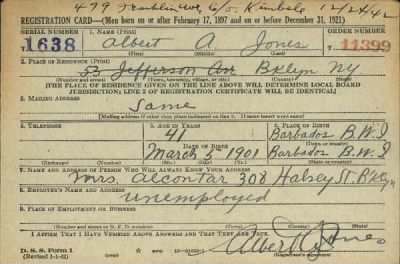 479 Franklin Ave c/o Kimbele 12/24/42
REGISTRATION CARD—(Men born on or after February 17, 1897 and on or before December 31, 1921)
SERIAL NUMBER 1. NAME (Print) ORDER NUMBER
1638 Albert A Jones 11399
(First) (Middle) (Last)
2. PLACE OF RESIDENCE (Print)
53 Jefferson Ave Bklyn NY
(Number and street) (Town, township, village, or city) (County) (State)
[THE PLACE OF RESIDENCE GIVEN ON THE LINE ABOVE WILL DETERMINE LOCAL BOARD
JURISDICTION; LINE 2 OF REGISTRATION CERTIFICATE WILL BE IDENTICAL]
3. MAILING ADDRESS
Same
[Mailing address if other than place indicated on line 2. If same insert word same]
4. TELEPHONE 5. AGE IN YEARS 6. PLACE OF BIRTH
41 Barbados B.W.I
DATE OF BIRTH (Town or county)
March 1901 Barbados B.W.I
(Exchange) (Number) (Mo.) (Day) (Yr.) (State or country)
7. NAME AND ADDRESS OF PERSON WHO WILL ALWAYS KNOW YOUR ADDRESS
Mrs. Alcontar 308 Halsey St. Bklyn
8. EMPLOYER'S NAME AND ADDRESS
unemployed
9. PLACE OF EMPLOYMENT OR BUSINESS
(Number and street or R. F. D. number) (Town) (County) (State)
I AFFIRM THAT I HAVE VERIFIED ABOVE ANSWERS AND THAT THEY ARE TRUE.
D. S. S. Form 1 Albert A Jones
(Revised 1-1-42) (Registrant's signature)